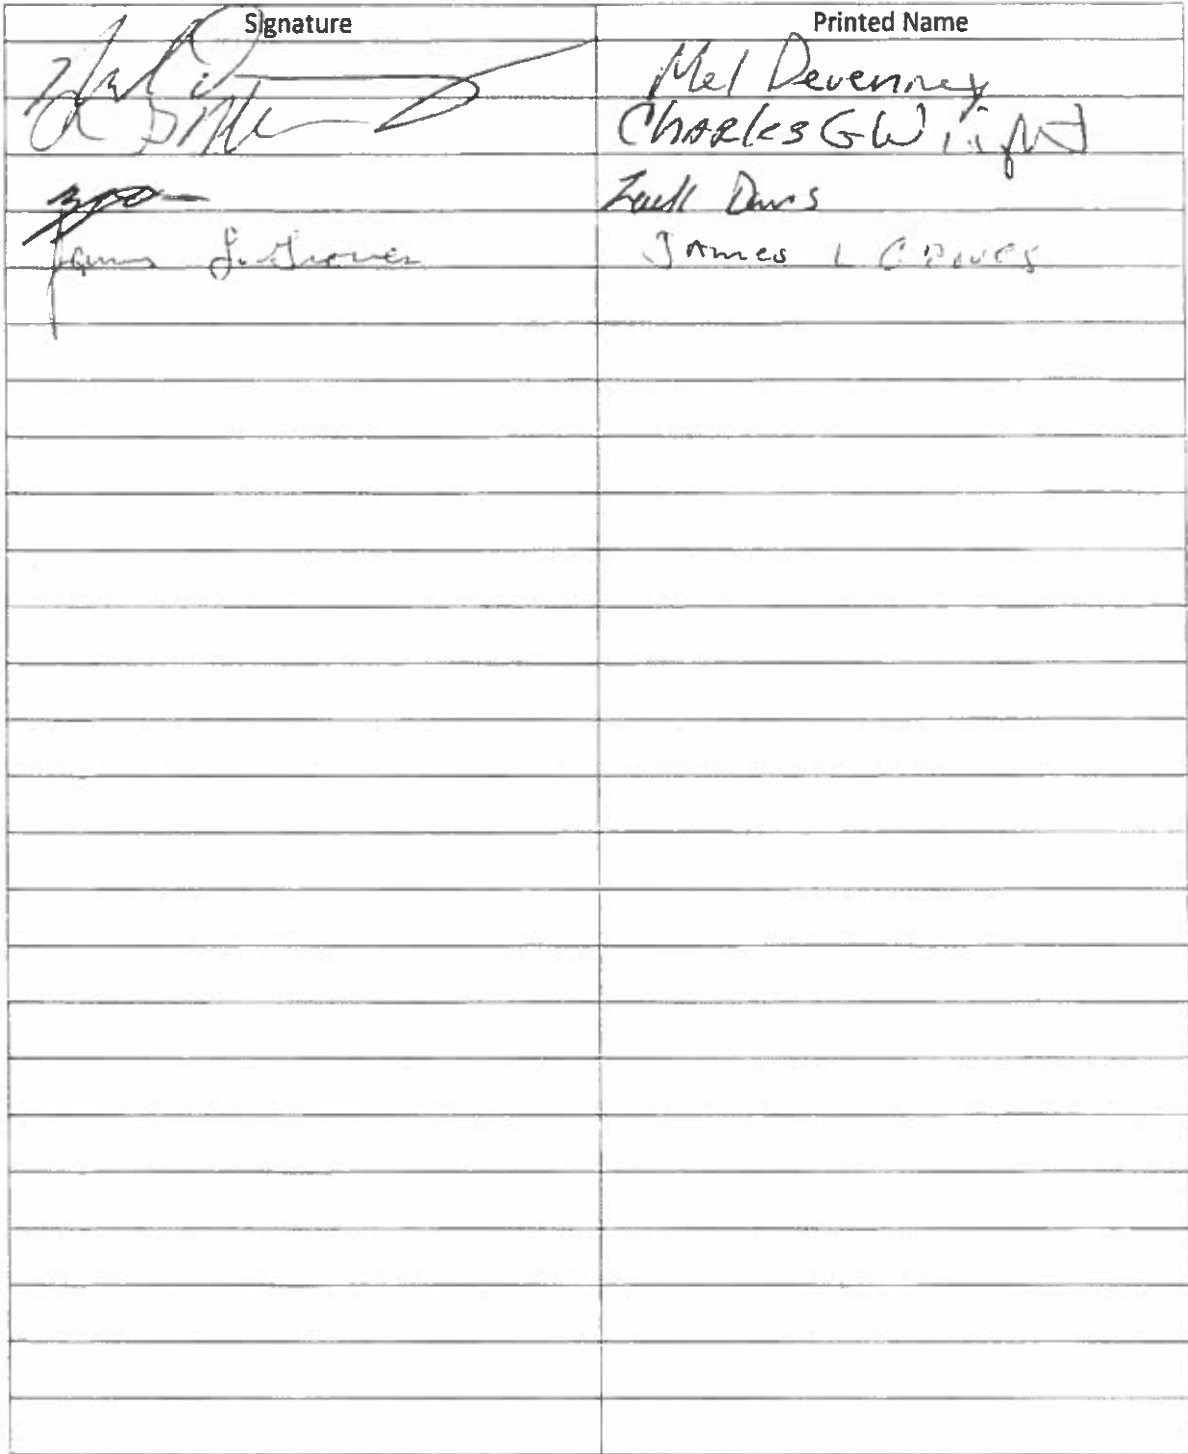 Signature Printed Name
Mel Devenney
Charles G Wright
Zack Davis
James L. Graves James L Graves